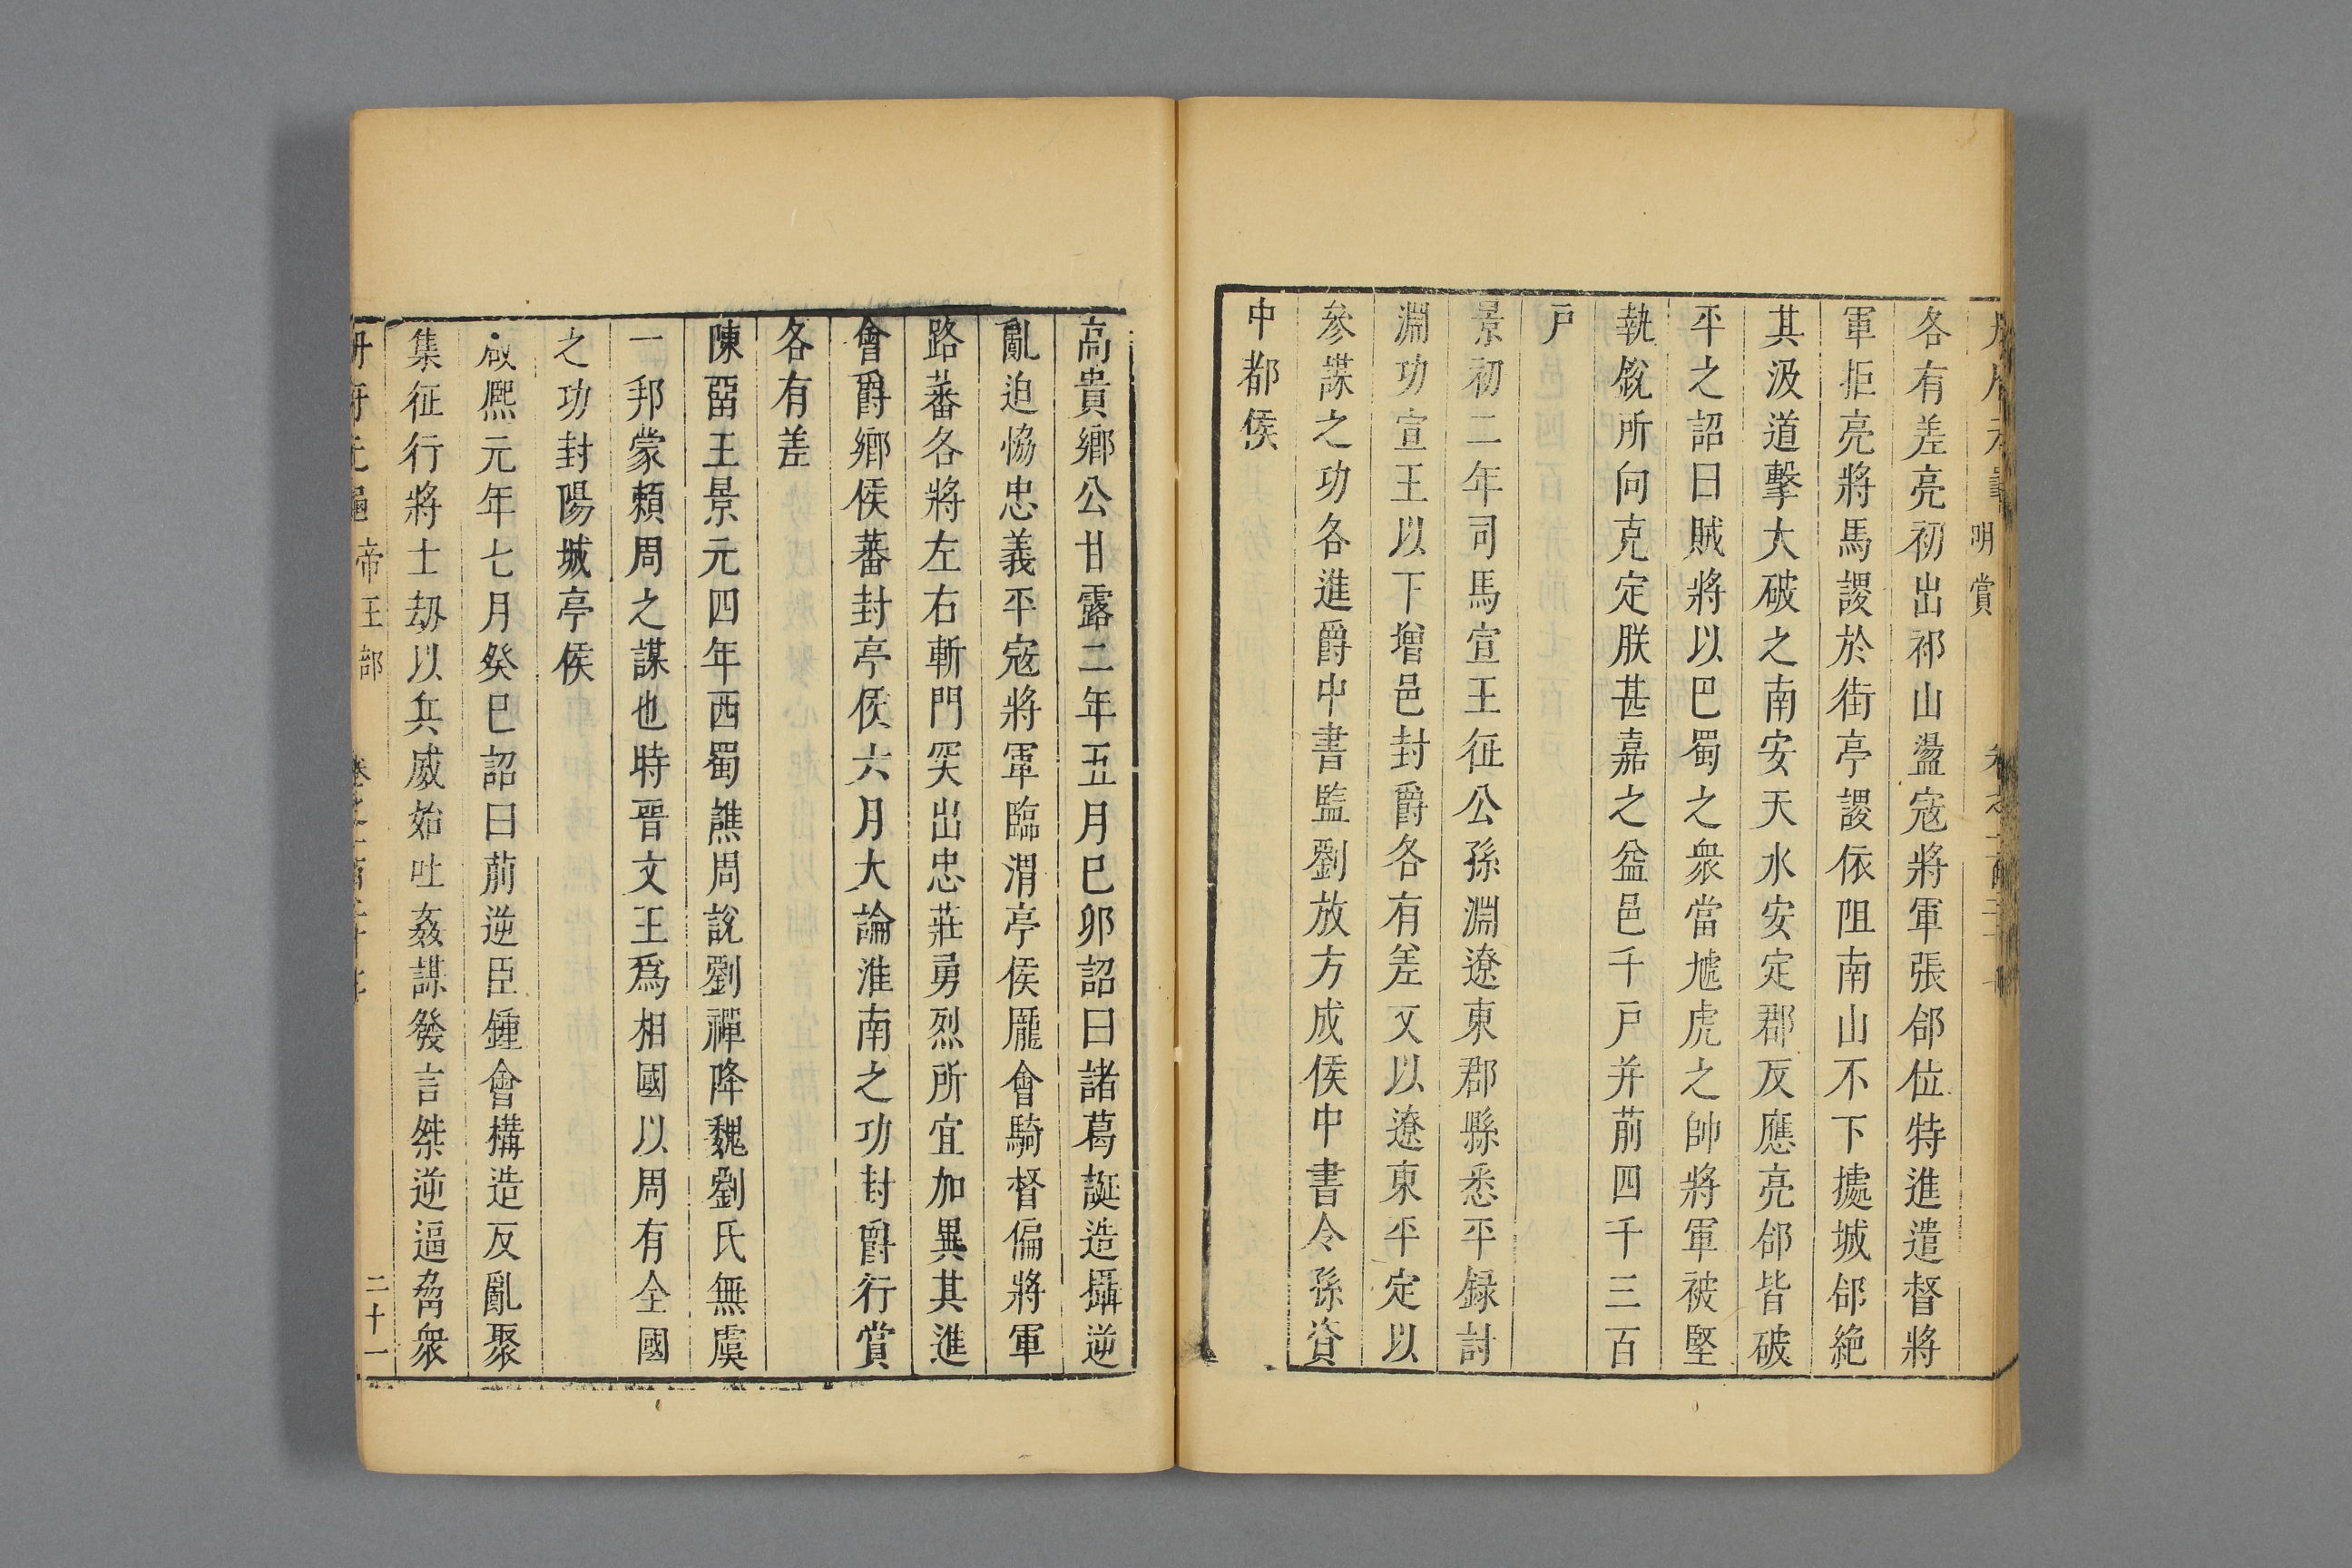 明賞
各有差亮初出祁山盪寇將軍張郃位特進遣督將
軍拒亮將馬謖於街亭謖依阻南山不下據城郃絶
其汲道擊大破之南安天水安定郡反應亮郃皆破
平之詔曰賊將以巴蜀之衆當虓虎之帥將軍被堅
執銳所向克定朕甚嘉之益邑千戸并前四千三百
戸
景初二年司馬宣王征公孫淵遼東郡縣悉平録討
淵功宣王以下增邑封爵各有差又以遼東平定以
參謀之功各進爵中書監劉放方成侯中書令孫資
中都侯
高貴鄉公甘露二年五月巳卯詔曰諸葛誕造搆逆
亂迫恊忠義平寇將軍臨渭亭侯龐會騎督偏將軍
路蕃各將左右斬門突出忠莊勇烈所宜加異其進
會爵鄉侯蕃封亭侯六月大論淮南之功封爵行賞
各有差
陳畱王景元四年西蜀譙周說劉禪降魏劉氏無虞
一邦蒙賴周之謀也時晉文王爲相國以周有全國
之功封陽城亭侯
咸熈元年七月癸巳詔曰前逆臣鍾會構造反亂聚
集征行將士刼以兵威始吐姦謀發言桀逆逼脅衆
册府元龜 帝王部
二十一